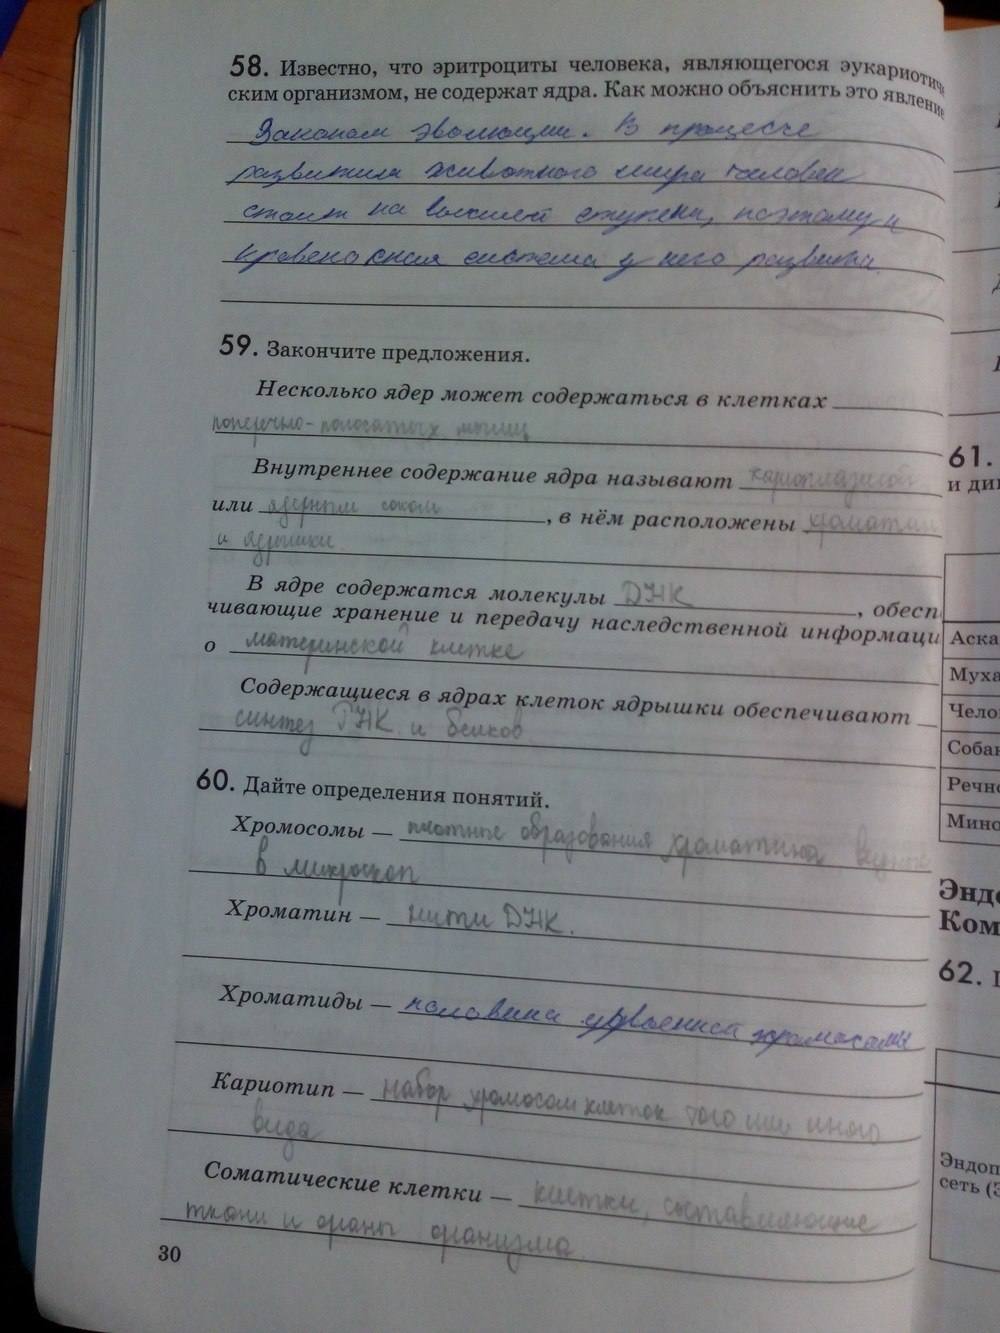 58. Известно, что эритроциты человека, являющегося эукариотиче
ским организмом, не содержат ядра. Как можно объяснить это явление
Законом эволюции. В процессе
развития животного мира человек
стоит на высшей ступени, поэтому и
кровеносная система у него развита.
59. Закончите предложения.
Несколько ядер может содержаться в клетках
поперечно-полосатых мышц
Внутреннее содержание ядра называют кариоплазмой
или ядерным соком, в нём расположены хроматин
и ядрышки
В ядре содержатся молекулы ДНК, обесп
чивающие хранение и передачу наследственной информаци
о материнской клетке
Содержащиеся в ядрах клеток ядрышки обеспечивают
синтез РНК и белков
60. Дайте определения понятий.
Хромосомы — плотные образования хроматина видные
в микроскоп
Хроматин — нити ДНК.
Хроматиды — половина удвоенной хромосомы
Кариотип — набор хромосом клеток того или иного
вида
Соматические клетки — клетки, составляющие
ткани и органы организма
30
61.
и ди
Аска
Муха
Чело
Соба
Речно
Мино
Эндо
Ком
62.
Эндоп
сеть (Э